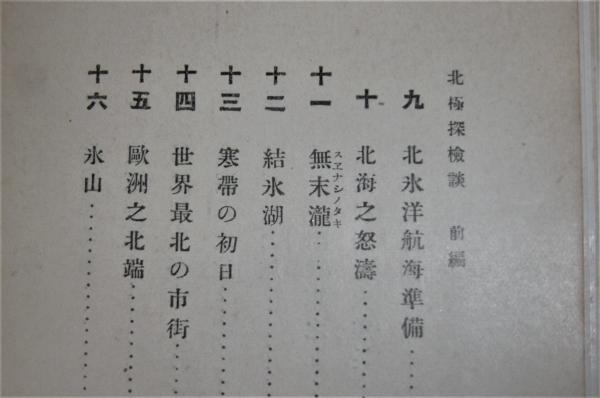 北極探檢談 前編
九 北氷洋航海準備……
十 北海之怒濤……
十一 無末瀧……
スヱナシノタキ
十二 結氷湖……
十三 寒帶の初日……
十四 世界最北の市街……
十五 歐洲之北端……
十六 氷山……